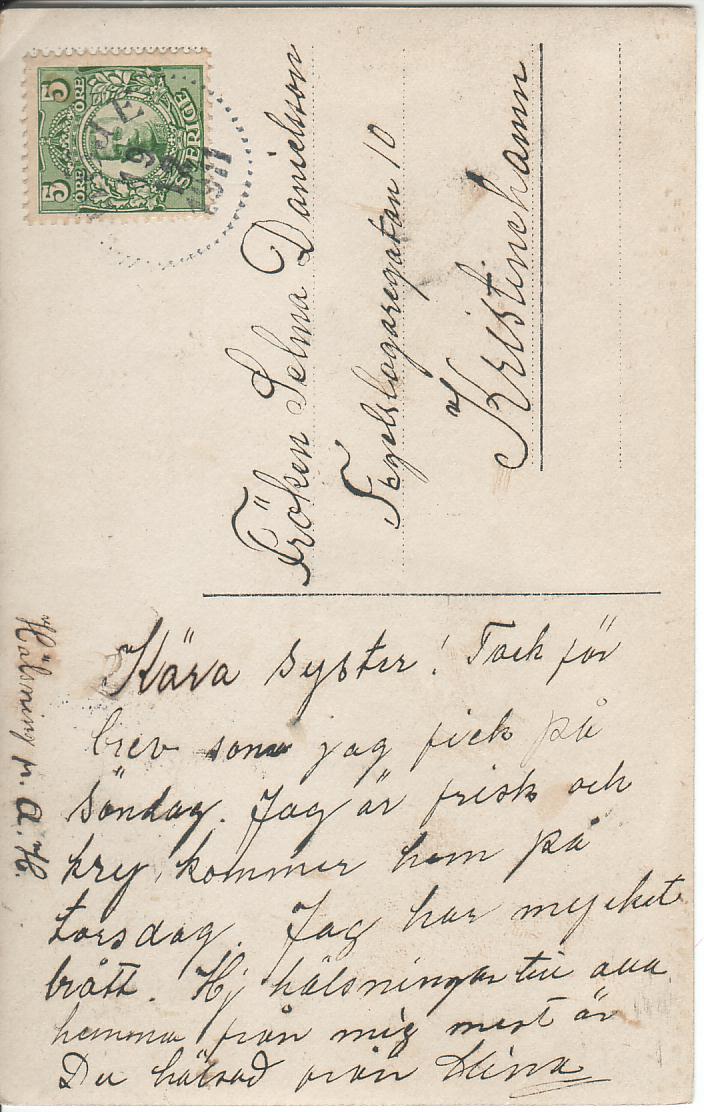 5 ÖRE 5 ÖRE
SVERIGE
19
1911
Fröken Selma Danielsson
Tegelslagaregatan 10
Kristinehamn
Kära syster! Tack för
brev som jag fick på
söndag. Jag är frisk och
kry, kommer hem på
torsdag. Jag har mycket
brått. Hj hälsningar till alla
hemma från mig mest är
Du hälsad från
Hälsning fr. A. H.